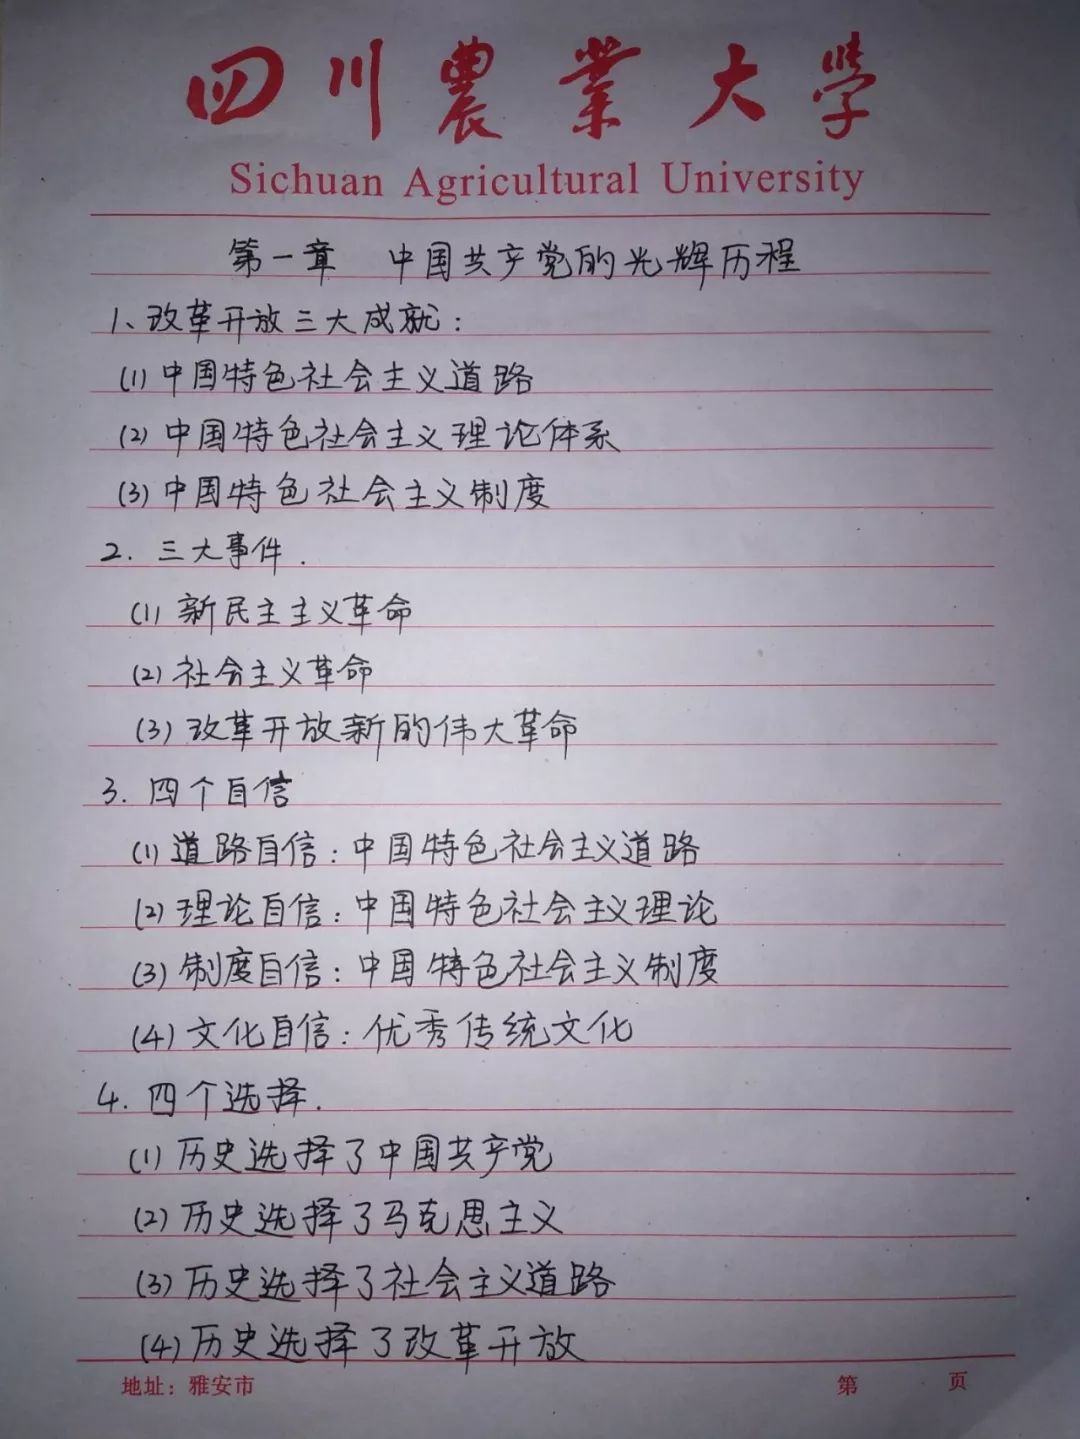 四川農業大學
Sichuan Agricultural University
第一章 中国共产党的光辉历程
1、改革开放三大成就：
(1)中国特色社会主义道路
(2)中国特色社会主义理论体系
(3)中国特色社会主义制度
2. 三大事件.
(1)新民主主义革命
(2)社会主义革命
(3)改革开放新的伟大革命
3. 四个自信
(1)道路自信：中国特色社会主义道路
(2)理论自信：中国特色社会主义理论
(3)制度自信：中国特色社会主义制度
(4)文化自信：优秀传统文化
4. 四个选择.
(1)历史选择了中国共产党
(2)历史选择了马克思主义
(3)历史选择了社会主义道路
(4)历史选择了改革开放
地址：雅安市 第 页